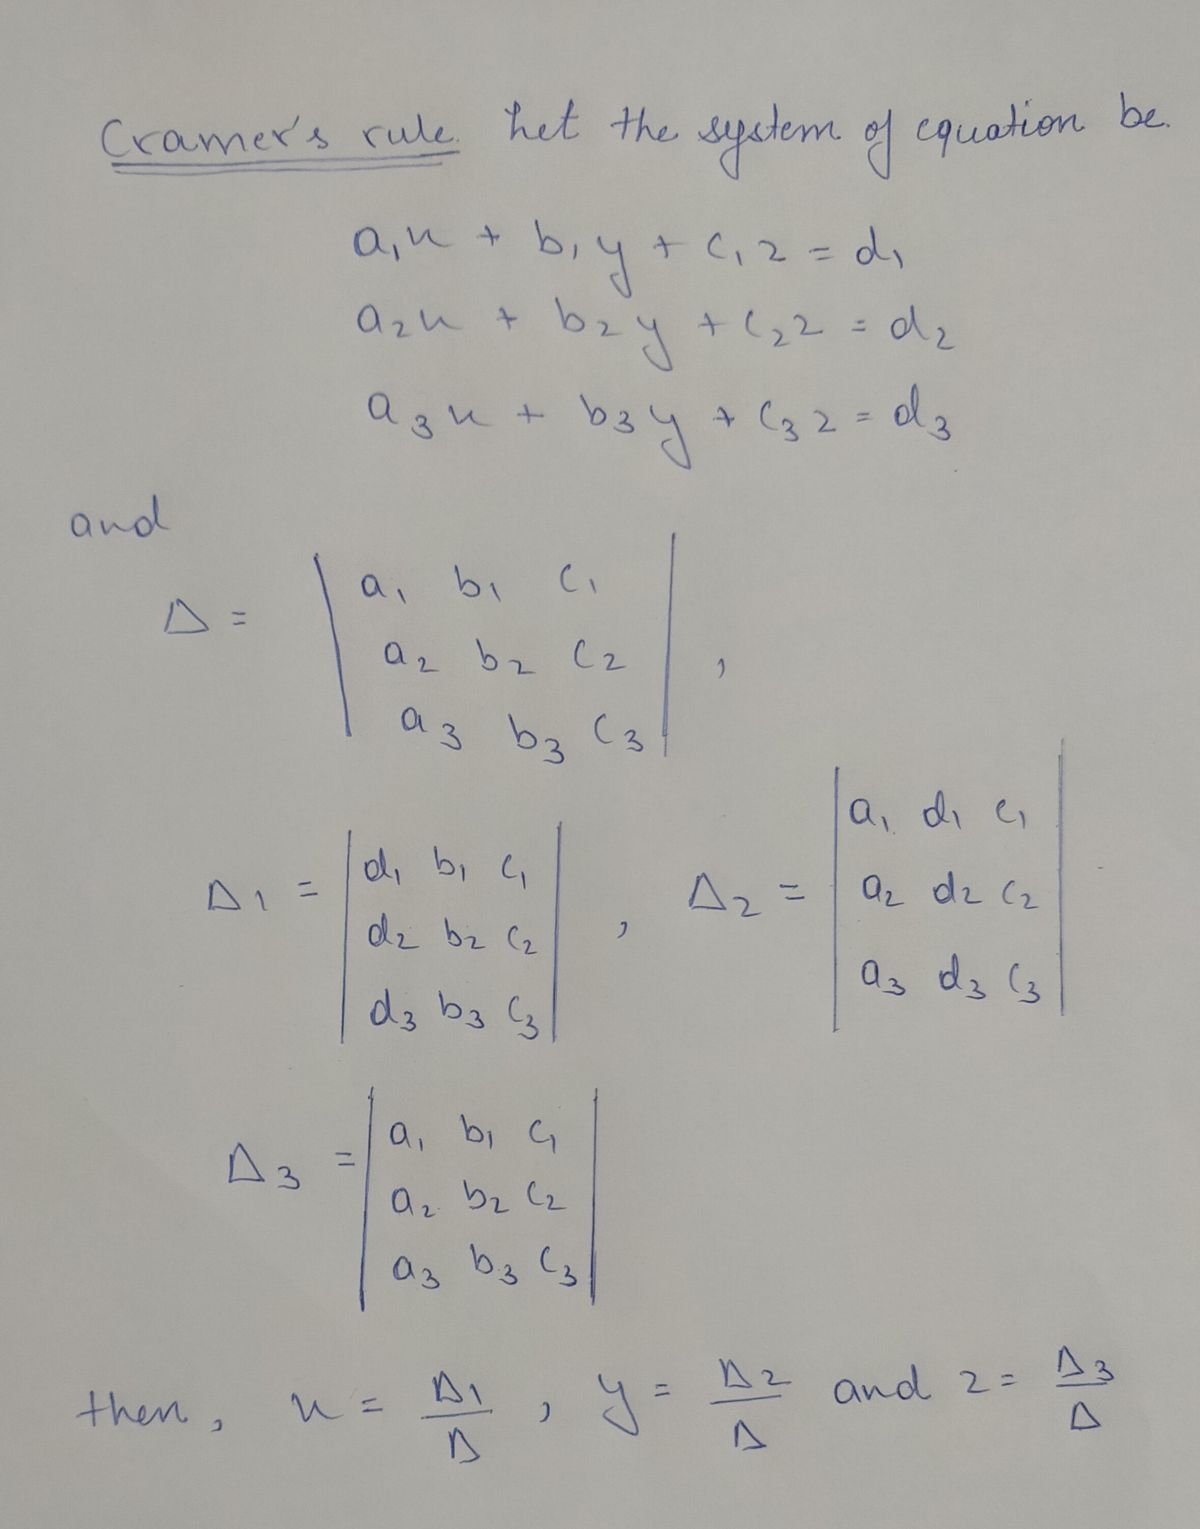 Cramer's rule. Let the system of equation be.
a₁x + b₁y + c₁z = d₁
a₂x + b₂y + c₂z = d₂
a₃x + b₃y + c₃z = d₃
and
Δ = | a₁ b₁ c₁ |
| a₂ b₂ c₂ | ,
| a₃ b₃ c₃ |
Δ₁ = | d₁ b₁ c₁ | , Δ₂ = | a₁ d₁ c₁ |
| d₂ b₂ c₂ | | a₂ d₂ c₂ |
| d₃ b₃ c₃ | | a₃ d₃ c₃ |
Δ₃ = | a₁ b₁ c₁ |
| a₂ b₂ c₂ |
| a₃ b₃ c₃ |
then, x = Δ₁/Δ , y = Δ₂/Δ and z = Δ₃/Δ